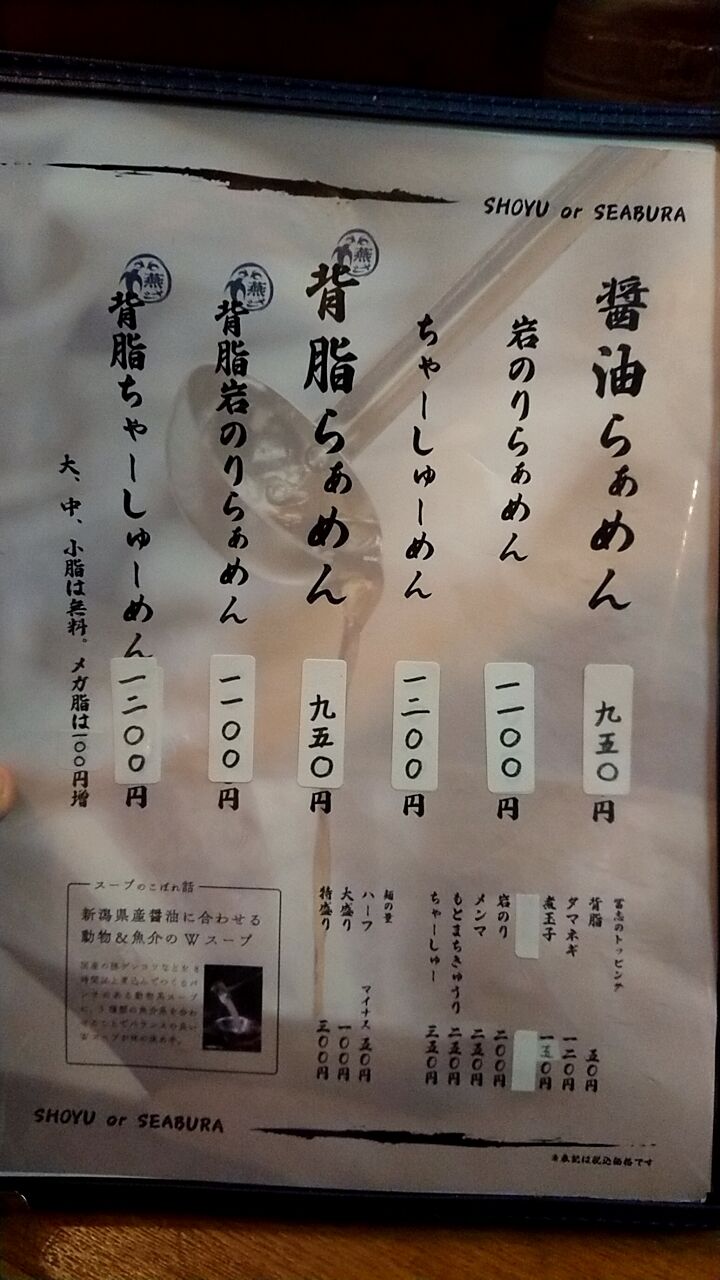 SHOYU or SEABURA
醤油らぁめん 九五〇円
岩のりらぁめん 一一〇〇円
ちゃーしゅーめん 一二〇〇円
燕
背脂らぁめん 九五〇円
燕
背脂岩のりらぁめん 一一〇〇円
燕
背脂ちゃーしゅーめん 一二〇〇円
大、中、小脂は無料。メガ脂は一〇〇円増
冨志のトッピング
背脂 五〇円
タマネギ 一二〇円
煮玉子 一五〇円
岩のり 二〇〇円
メンマ 二五〇円
もとまちきゅうり 二五〇円
ちゃーしゅー 三五〇円
麺の量
ハーフ マイナス五〇円
大盛り 一〇〇円
特盛り 三〇〇円
スープのこぼれ話
新潟県産醤油に合わせる
動物&魚介のWスープ
SHOYU or SEABURA
※表記は税込価格です